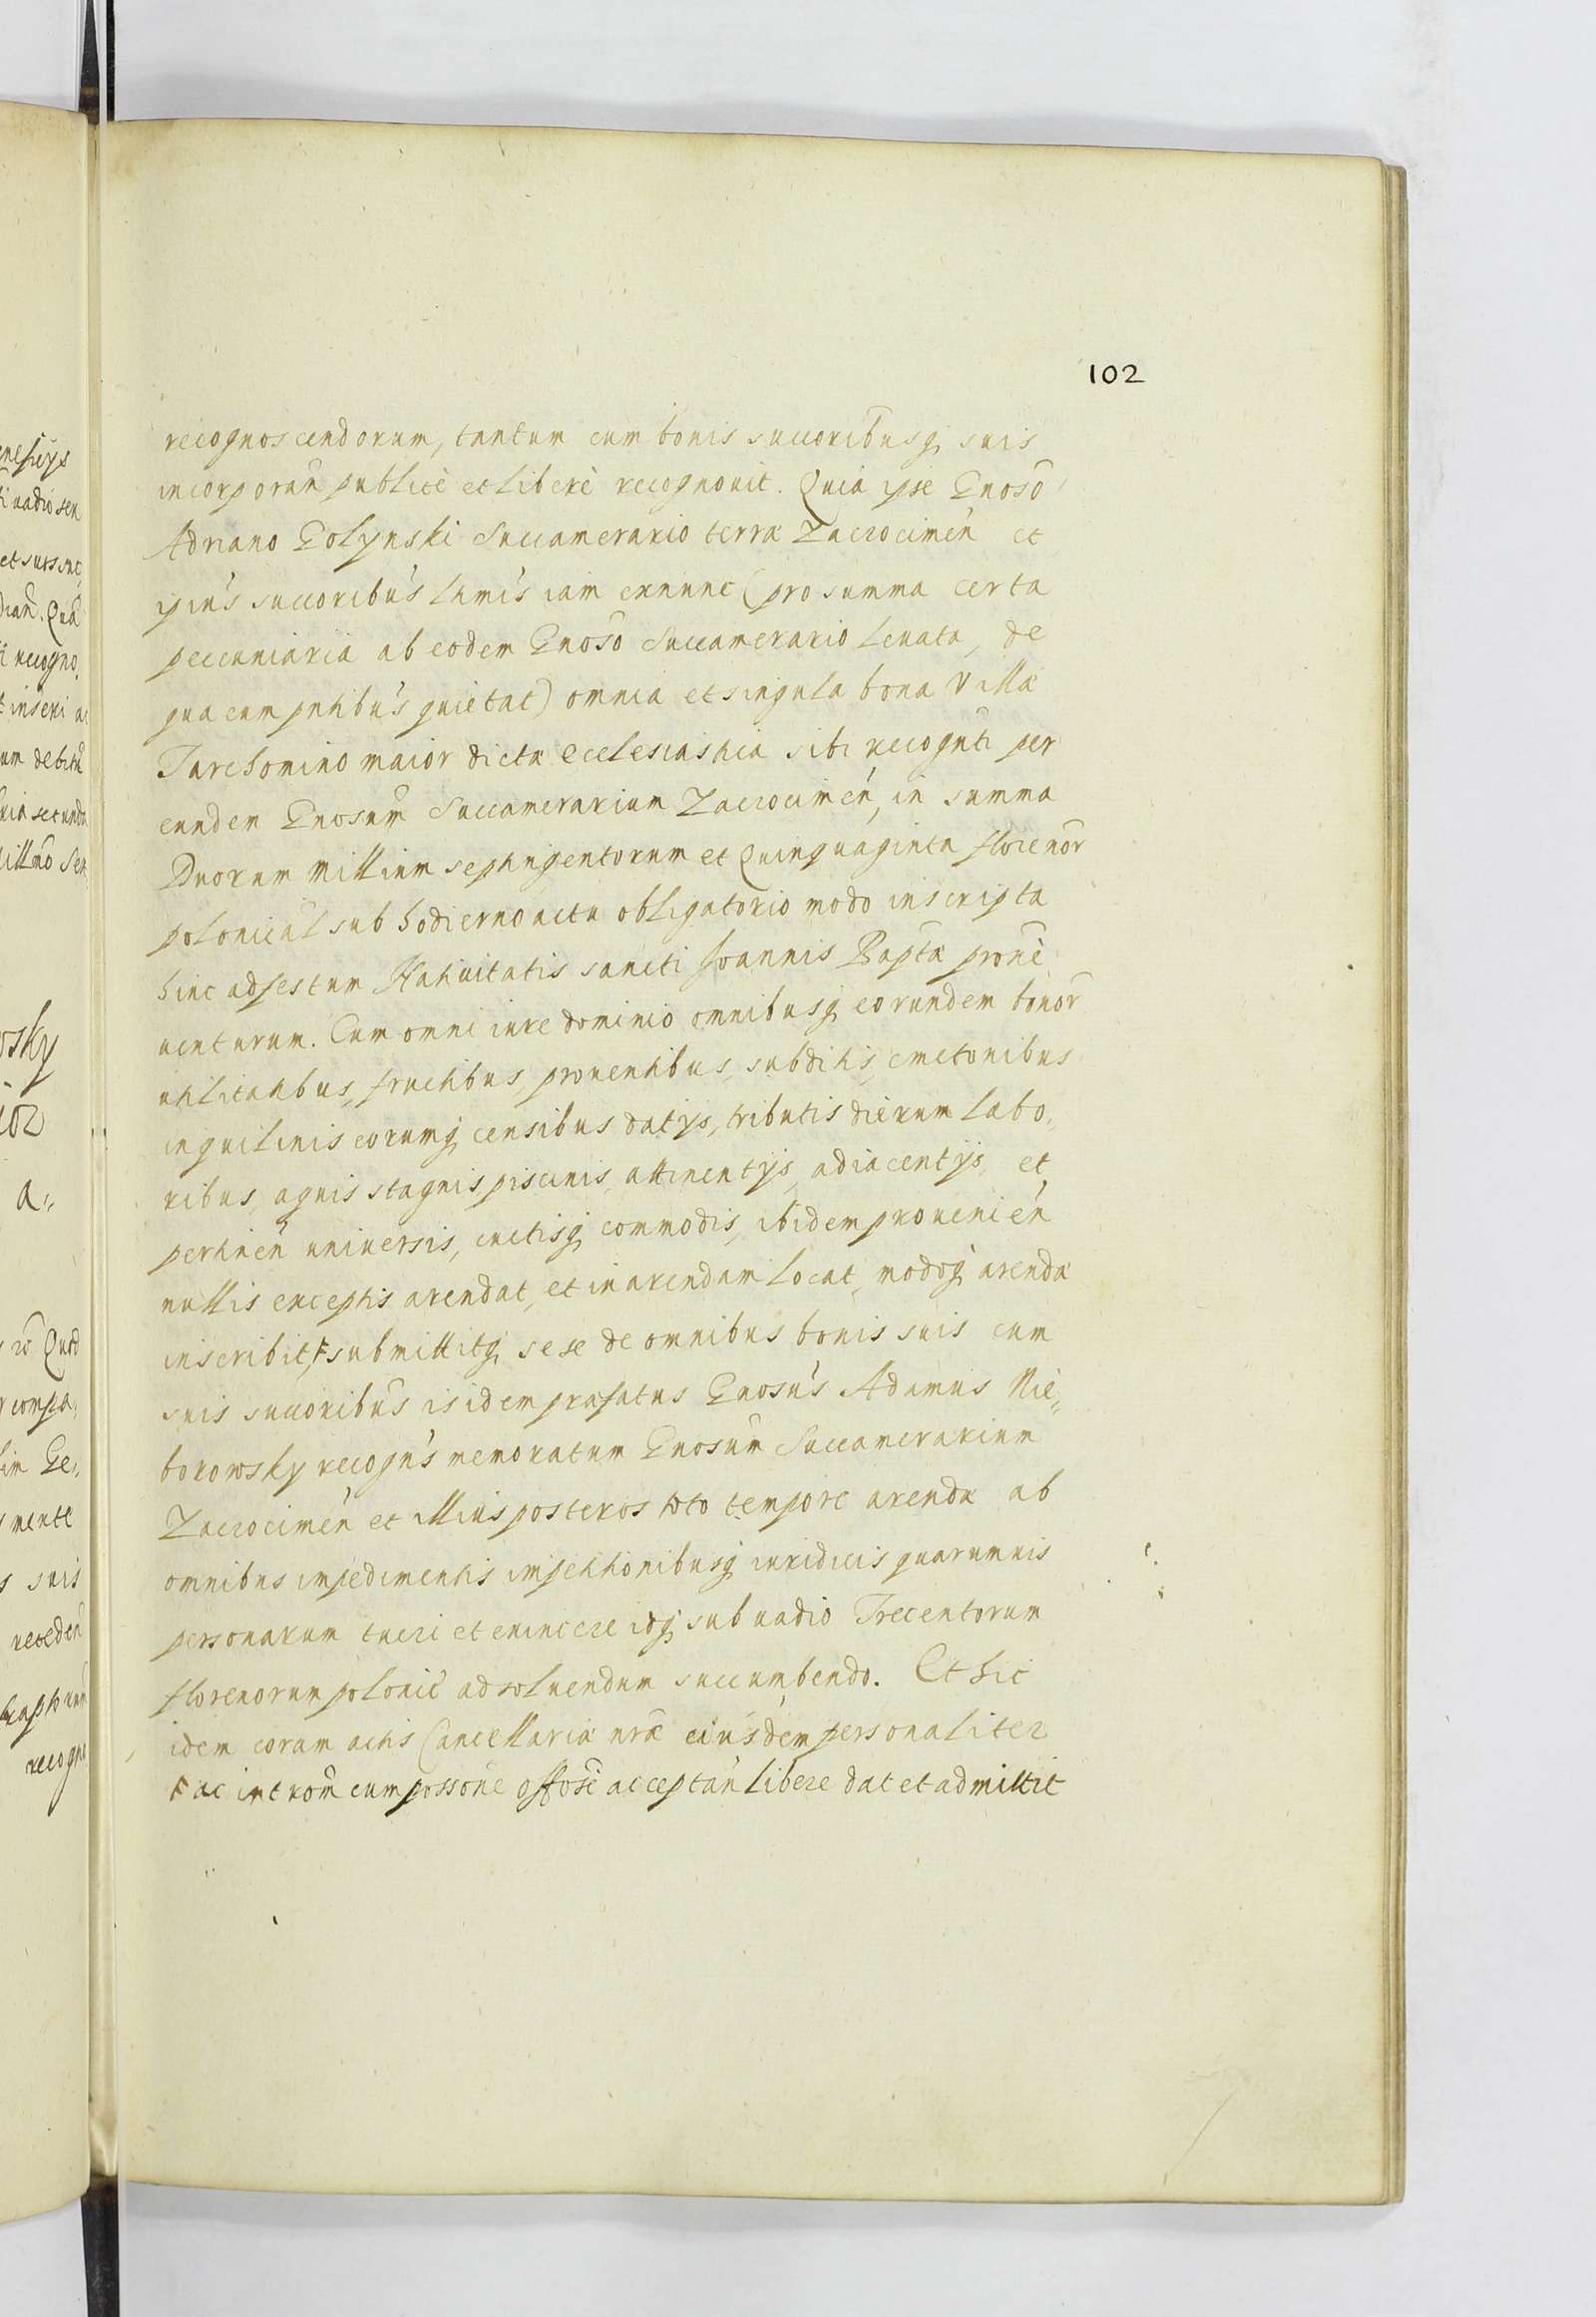 102
recognoscendorum, tantum cum bonis succoribusq suis
incorporan̄ publicè et liberè recognouit. Quia ipse Gnoso
Adriano Golynski Succamerario terræ Zacrocimen̄ et
ipiu's succoribu's lĩmi's iam exnunc (pro summa certa
peccuniaria ab eodem Gnoso Succamerario leuata, de
qua cum pñtibu's quietat) omnia et singula bona Villæ
Tarchomino maior dictæ ecclesiastica sibi recognti per
eundem Gnosum Succamerarium Zacrocimen̄, in summa
Duorum Millium septingentorum et Quinquaginta florenor
polonical sub hodierno actu obligatorio modo inscripta
hinc ad festum Natiuitatis sancti Joannis Baptæ pronè
uenturum. Cum omni iure dominio omnibusq eorundem bonor
utilitatibus, fructibus, prouentibus, subditis, cmetonibus
inquilinis eorumq censibus datijs, tributis dierum labo,,
ribus, aquis stagnis, piscinis, attinentijs, adiacentijs, et
pertinen̄ uniuersis, cuctisq commodis, ibidem prouenien̄
nullis exceptis arendat, et in arendam locat, modoq arendæ
inscribit, F submittitq sese de omnibus bonis suis cum
suis succoribus is idem præfatus Gnosu's Adamus Nie,,
borowsky recogn's memoratum Gnosum Succamerarium
Zacrocimen̄ et illius posteros toto tempore arendæ ab
omnibus impedimentis impetitionibusq iuridicis quarumuis
personarum tueri et euincere idq sub uadio Trecentorum
florenorum polonic̄ ad soluendum succumbendo. Et hic
idem coram actis Cancellariæ nr̄æ eiusdem personaliter
F ac introm̄ cum possone offose acceptan̄ libere dat et admittit